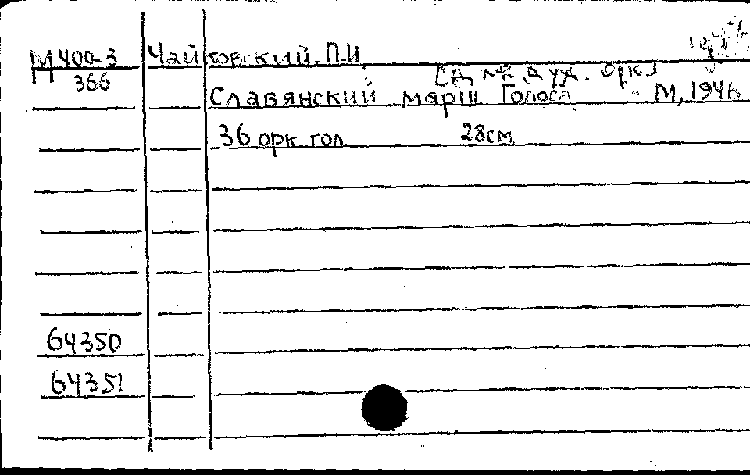 М 400-3 Чайковский, П.И.
366
дух. орк.
Славянский марш Голоса М, 194
36 орк. гол. 28см.
64350
64351